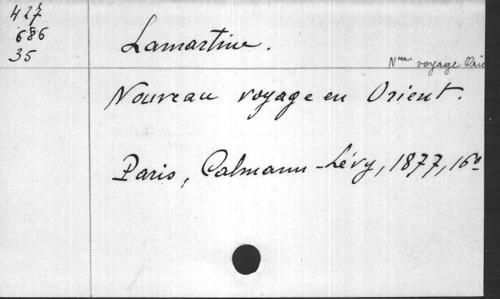 427
686
35
Lamartine.
Nveau voyage Orie
Nouveau voyage en Orient.
Paris, Calmann-Lévy, 1877, 16º